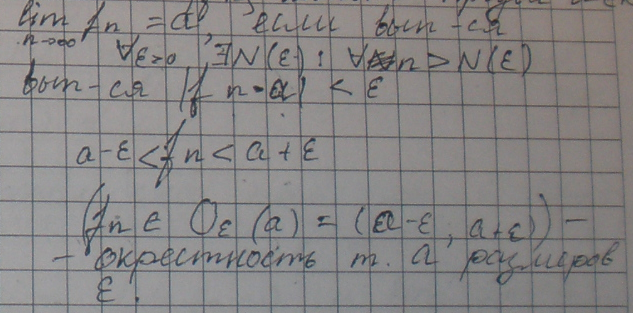 lim fn = a, если вып-ся
n→∞
∀ε>0, ∃N(ε): ∀n > N(ε)
вып-ся |fn-a| < ε
a-ε < fn < a+ε
(fn ∈ Oε(a) = (a-ε, a+ε)) -
- окрестность т. a размеров
ε.